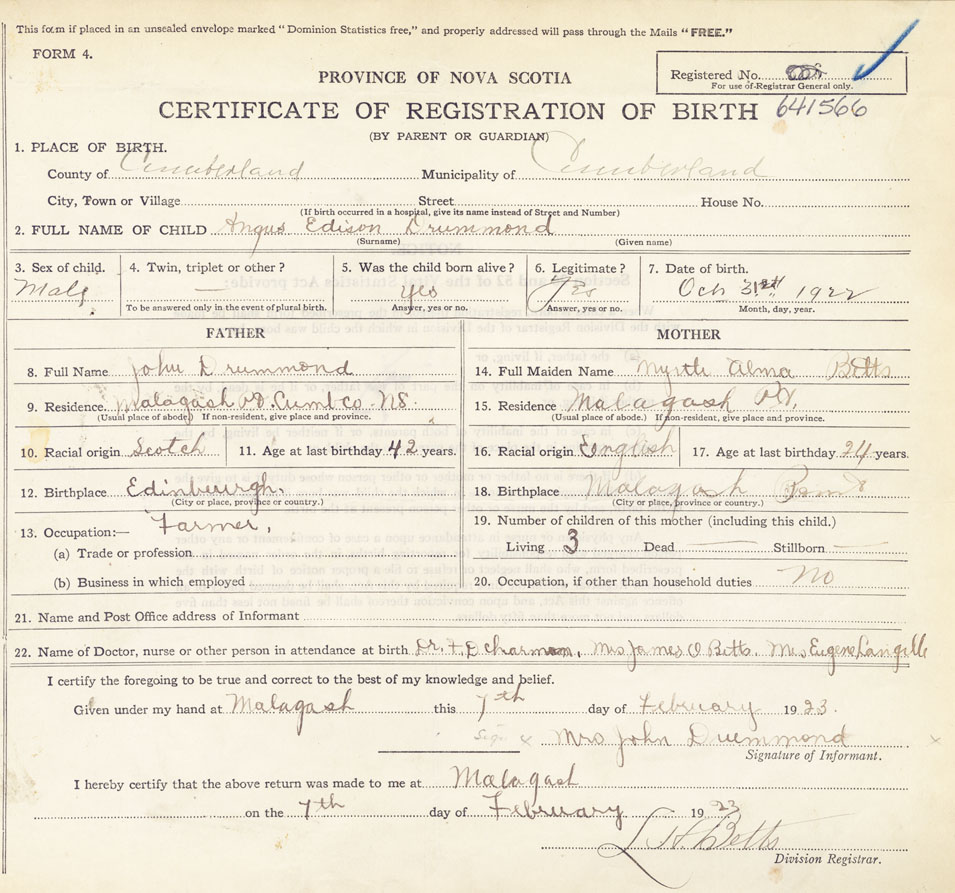 This form if placed in an unsealed envelope marked "Dominion Statistics free," and properly addressed will pass through the Mails "FREE."
FORM 4.
PROVINCE OF NOVA SCOTIA
Registered No.
For use of Registrar General only.
CERTIFICATE OF REGISTRATION OF BIRTH 641566
(BY PARENT OR GUARDIAN)
1. PLACE OF BIRTH.
County of Cumberland Municipality of Cumberland
City, Town or Village Street House No.
(If birth occurred in a hospital, give its name instead of Street and Number)
2. FULL NAME OF CHILD Angus Edison Drummond
(Surname) (Given name)
3. Sex of child. 4. Twin, triplet or other? 5. Was the child born alive? 6. Legitimate? 7. Date of birth.
Male — Yes Yes Oct 31st 1922
To be answered only in the event of plural birth. Answer, yes or no. Answer, yes or no. Month, day, year.
FATHER MOTHER
8. Full Name John Drummond 14. Full Maiden Name Myrtle Alma Betts
9. Residence Malagash Cumb Co. NS. 15. Residence Malagash
(Usual place of abode) If non-resident, give place and province. (Usual place of abode.) If non-resident, give place and province.
10. Racial origin Scotch 11. Age at last birthday 42 years. 16. Racial origin English 17. Age at last birthday 24 years.
12. Birthplace Edinburgh. 18. Birthplace Malagash Point
(City or place, province or country.) (City or place, province or country.)
13. Occupation:— Farmer, 19. Number of children of this mother (including this child.)
(a) Trade or profession Living 3 Dead — Stillborn —
(b) Business in which employed 20. Occupation, if other than household duties No
21. Name and Post Office address of Informant
22. Name of Doctor, nurse or other person in attendance at birth Dr. F. D Charman, Mrs James O Betts. Mrs Eugene Langille
I certify the foregoing to be true and correct to the best of my knowledge and belief.
Given under my hand at Malagash this 7th day of February 1923.
Sign x Mrs John Drummond x
Signature of Informant.
I hereby certify that the above return was made to me at Malagash
on the 7th day of February 1923
L H. Betts
Division Registrar.